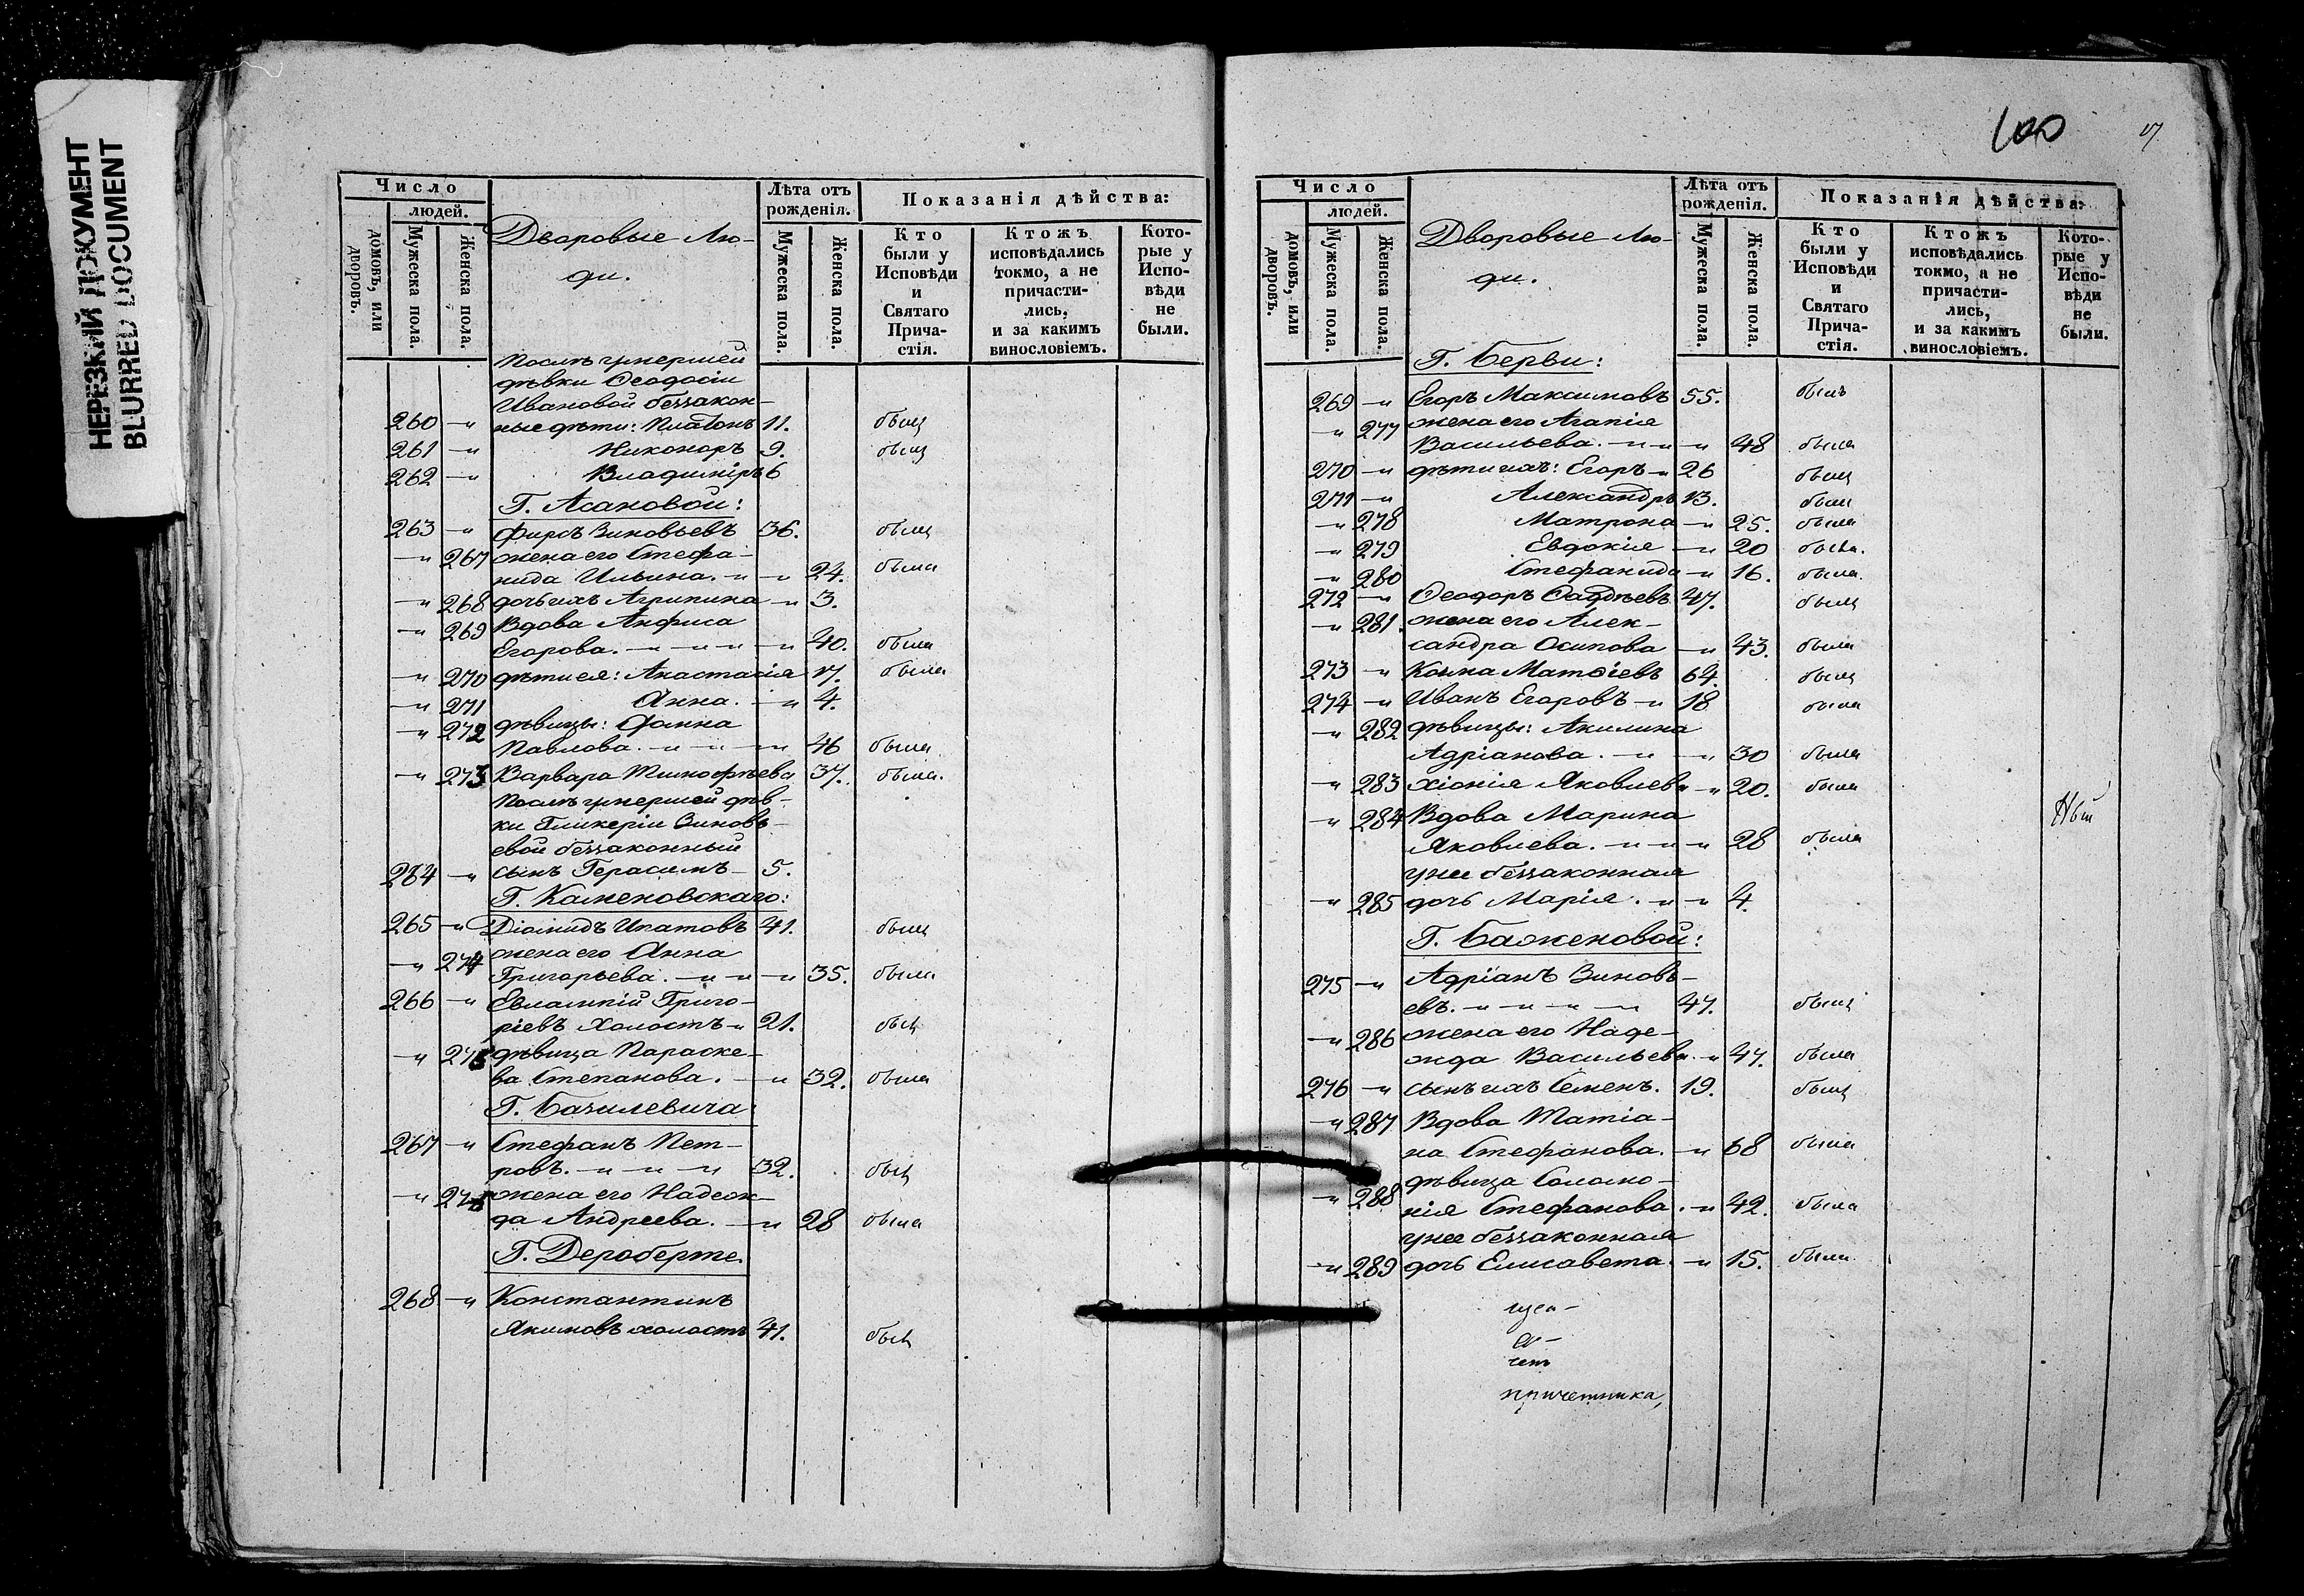 НЕРЕЗКИЙ ДОКУМЕНТ
BLURRED DOCUMENT
Число
людей.
домовъ, или дворовъ.
Мужеска пола.
Женска пола.
Дворовые Лю-
ди.
Лѣта отъ рожденія.
Мужеска пола.
Женска пола.
Показанія дѣйства:
Кто были у Исповѣди и Святаго Прича-стія.
Ктожъ исповѣдались токмо, а не причасти-лись, и за какимъ винословіемъ.
Кото-рые у Испо-вѣди не были.
Послѣ умершей
дѣвки Ѳеодосіи
Ивановой беззакон-
260 -„ ные дѣти: Платонъ 11. былъ
261 -„ Никоноръ 9. былъ
262 -„ Владиміръ 6
Г. Асановой:
263 -„ Фирсъ Зиновьевъ 36. былъ
-„ 267 жена его Стефа-
нида Ильина. -„ -„ 24. была
-„ 268 дочь ихъ Агрипина -„ 3.
-„ 269 Вдова Анфиса
Егорова. -„ -„ -„ -„ 40. была
-„ 270 дѣти ея: Анастасія 17. была
-„ 271 Анна. -„ 4.
-„ 272 дѣвицы:
Павлова. -„ -„ -„ 46 была
-„ 273 Варвара Тимофѣева 37. была.
Послѣ умершей дѣв-
ки Гликеріи Зиновь-
евой беззаконный
264 -„ сынъ Герасимъ - 5.
Г. Каменовскаго:
265 -„ Діомидъ Ипатовъ 41. былъ
-„ 274 жена его Анна
Григорьева. -„ -„ -„ 35. была
266 -„ Евлампій Григо-
ріевъ холостъ -„ 21. былъ
-„ 275 дѣвица Параске-
ва Степанова. -„ 32. была
Г. Базилевича:
267 -„ Стефанъ Пет-
ровъ. -„ -„ -„ 32. былъ
-„ 276 жена его Надеж-
да Андреева. -„ 28 была
Г. Дероберте.
268 -„ Константинъ
Якимовъ холостъ 41. былъ
100
17
Число
людей.
домовъ, или дворовъ.
Мужеска пола.
Женска пола.
Дворовые Лю-
ди.
Лѣта отъ рожденія.
Мужеска пола.
Женска пола.
Показанія дѣйства:
Кто были у Исповѣди и Святаго Прича-стія.
Ктожъ исповѣдались токмо, а не причасти-лись, и за какимъ винословіемъ.
Кото-рые у Испо-вѣди не были.
Г. Берви:
269 -„ Егоръ Максимовъ 55. былъ
-„ 277 жена его Агапія
Васильева. -„ -„ -„ 48 была
270 -„ дѣти ихъ: Егоръ -„ 26 былъ
271 -„ Александръ 13. былъ
-„ 278 Матрона -„ 25. была
-„ 279 Евдокія -„ 20 была.
-„ 280 Стефанида -„ 16. была.
272 -„ Ѳеодоръ Ѳаддѣевъ 47. былъ
-„ 281. жена его Алек-
сандра Осипова -„ 43. была
273 -„ Козма Матѳіевъ 64. былъ
274 -„ Иванъ Егоровъ -„ 18 была
-„ 282 дѣвицы: Акилина
Адріанова. -„ -„ 30 была
-„ 283 Хіонія Яковлева -„ 20. была
-„ 284 Вдова Марина
Яковлева. -„ -„ -„ 28 была
у нее беззаконная
-„ 285 дочь Марія. -„ -„ 4.
Г. Баженовой:
275 -„ Адріанъ Зиновь-
евъ. -„ -„ -„ -„ 47. былъ
-„ 286 жена его Наде-
жда Васильева. -„ 47. была
276 -„ сынъ ихъ Семенъ. 19. былъ
-„ 287 Вдова Татіа-
на Стефанова. -„ 68 была
-„ 288 дѣвица Соломо-
нія Стефанова. -„ 42. была
у нее беззаконная
-„ 289 дочь Елисавета. -„ 15. была
причетника,